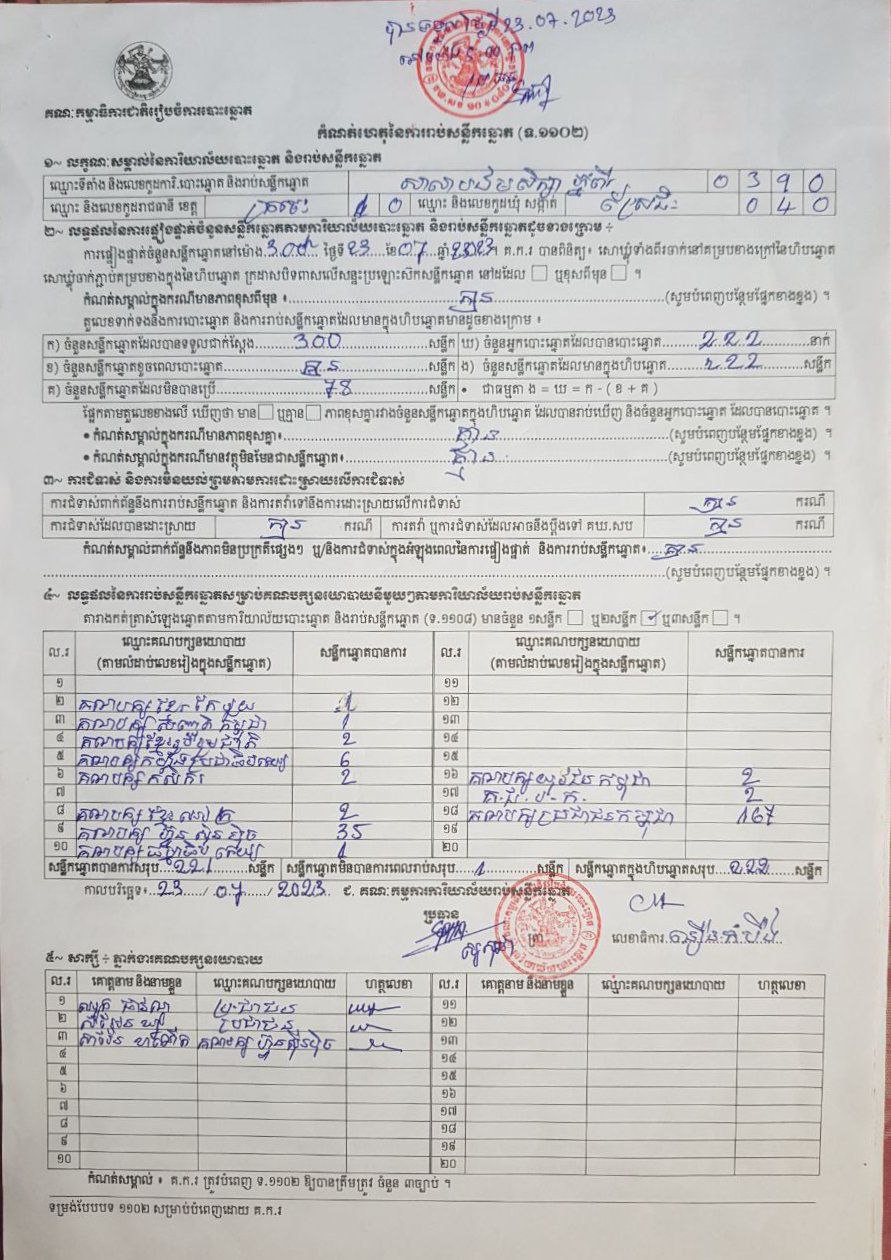 បានទទួលថ្ងៃទី 23.07.2023
គណៈកម្មាធិការជាតិរៀបចំការបោះឆ្នោត
កំណត់ហេតុនៃការរាប់សន្លឹកឆ្នោត (ទ.១១០២)
១~ លក្ខណៈសម្គាល់នៃការិយាល័យបោះឆ្នោត និងរាប់សន្លឹកឆ្នោត
ឈ្មោះទីតាំង និងលេខកូដការិ.បោះឆ្នោត និងរាប់សន្លឹកឆ្នោត 0 3 9 0
ឈ្មោះ និងលេខកូដរាជធានី ខេត្ត ក្រចេះ 1 0 ឈ្មោះ និងលេខកូដឃុំ សង្កាត់ 0 4 0
២~ លទ្ធផលនៃការផ្ទៀងផ្ទាត់ចំនួនសន្លឹកឆ្នោតតាមការិយាល័យបោះឆ្នោត និងរាប់សន្លឹកឆ្នោតដូចខាងក្រោម ÷
ការផ្ទៀងផ្ទាត់ចំនួនសន្លឹកឆ្នោតនៅម៉ោង 3:00 ថ្ងៃទី 23 ខែ 07 ឆ្នាំ 2023។ គ.ក.រ បានពិនិត្យ៖ សោឃ្លុំទាំងពីរចាក់នៅគម្របខាងក្រៅនៃហិបឆ្នោត
សោឃ្លុំចាក់ភ្ជាប់គម្របខាងក្នុងនៃហិបឆ្នោត ក្រដាសបិទពាសលើសន្ទះប្រឡោះស៊កសន្លឹកឆ្នោត នៅដដែល ឬខុសពីមុន ។
កំណត់សម្គាល់ក្នុងករណីមានភាពខុសពីមុន ៖ គ្មាន (សូមបំពេញបន្ថែមផ្នែកខាងខ្នង) ។
តួលេខទាក់ទងនឹងការបោះឆ្នោត និងការរាប់សន្លឹកឆ្នោតដែលមានក្នុងហិបឆ្នោតមានដូចខាងក្រោម ៖
ក) ចំនួនសន្លឹកឆ្នោតដែលបានទទួលជាក់ស្តែង 300 សន្លឹក ឃ) ចំនួនអ្នកបោះឆ្នោតដែលបានបោះឆ្នោត 222 នាក់
ខ) ចំនួនសន្លឹកឆ្នោតខូចពេលបោះឆ្នោត គ្មាន សន្លឹក ង) ចំនួនសន្លឹកឆ្នោតដែលមានក្នុងហិបឆ្នោត 222 សន្លឹក
គ) ចំនួនសន្លឹកឆ្នោតដែលមិនបានប្រើ 78 សន្លឹក • ជាធម្មតា ង = ឃ = ក - ( ខ + គ )
ផ្អែកតាមតួលេខខាងលើ ឃើញថា មាន ឬគ្មាន ភាពខុសគ្នារវាងចំនួនសន្លឹកឆ្នោតក្នុងហិបឆ្នោត ដែលបានរាប់ឃើញ និងចំនួនអ្នកបោះឆ្នោត ដែលបានបោះឆ្នោត ។
• កំណត់សម្គាល់ក្នុងករណីមានភាពខុសគ្នា៖ គ្មាន (សូមបំពេញបន្ថែមផ្នែកខាងខ្នង) ។
• កំណត់សម្គាល់ក្នុងករណីមានវត្ថុមិនមែនជាសន្លឹកឆ្នោត៖ គ្មាន (សូមបំពេញបន្ថែមផ្នែកខាងខ្នង) ។
៣~ ការជំទាស់ និងការមិនយល់ព្រមតាមការដោះស្រាយលើការជំទាស់
ការជំទាស់ពាក់ព័ន្ធនឹងការរាប់សន្លឹកឆ្នោត និងការតវ៉ាទៅនឹងការដោះស្រាយលើការជំទាស់ គ្មាន ករណី
ការជំទាស់ដែលបានដោះស្រាយ គ្មាន ករណី ការតវ៉ា ឬការជំទាស់ដែលអាចនឹងប្តឹងទៅ គឃ.សប គ្មាន ករណី
កំណត់សម្គាល់ពាក់ព័ន្ធនឹងភាពមិនប្រក្រតីផ្សេងៗ ឬ/និងការជំទាស់ក្នុងអំឡុងពេលនៃការផ្ទៀងផ្ទាត់ និងការរាប់សន្លឹកឆ្នោត៖ គ្មាន
(សូមបំពេញបន្ថែមផ្នែកខាងខ្នង) ។
៤~ លទ្ធផលនៃការរាប់សន្លឹកឆ្នោតសម្រាប់គណបក្សនយោបាយនីមួយៗតាមការិយាល័យរាប់សន្លឹកឆ្នោត
តារាងកត់ត្រាសំឡេងឆ្នោតតាមការិយាល័យបោះឆ្នោត និងរាប់សន្លឹកឆ្នោត (ទ.១១០៨) មានចំនួន ១សន្លឹក ឬ២សន្លឹក ✓ ឬ៣សន្លឹក ។
ល.រ ឈ្មោះគណបក្សនយោបាយ (តាមលំដាប់លេខរៀងក្នុងសន្លឹកឆ្នោត) សន្លឹកឆ្នោតបានការ ល.រ ឈ្មោះគណបក្សនយោបាយ (តាមលំដាប់លេខរៀងក្នុងសន្លឹកឆ្នោត) សន្លឹកឆ្នោតបានការ
១ ១១
២ គណបក្ស ខ្មែរ តែមួយ 1 ១២
៣ គណបក្ស កម្ពុជា 1 ១៣
៤ គណបក្សខ្មែររួបរួមជាតិ 2 ១៤
៥ គណបក្ស ប្រជាធិបតេយ្យ 6 ១៥
៦ គណបក្ស កសិករ 2 ១៦ គណបក្សយុវជន កម្ពុជា 2
៧ ១៧ គ.ជ.ប.ក. 2
៨ គណបក្ស ខ្មែរ 2 ១៨ គណបក្សប្រជាជនកម្ពុជា 167
៩ គណបក្ស ហ៊្វុនស៊ិនប៉ិច 35 ១៩
១០ គណបក្ស ធម្មាធិបតេយ្យ 1 ២០
សន្លឹកឆ្នោតបានការសរុប 221 សន្លឹក សន្លឹកឆ្នោតមិនបានការពេលរាប់សរុប 1 សន្លឹក សន្លឹកឆ្នោតក្នុងហិបឆ្នោតសរុប 222 សន្លឹក
កាលបរិច្ឆេទ៖ 23 / 07 / 2023 ជ. គណៈកម្មការការិយាល័យរាប់សន្លឹកឆ្នោត
ប្រធាន
លេខាធិការ
៥~ សាក្សី ÷ ភ្នាក់ងារគណបក្សនយោបាយ
ល.រ គោត្តនាម និងនាមខ្លួន ឈ្មោះគណបក្សនយោបាយ ហត្ថលេខា ល.រ គោត្តនាម និងនាមខ្លួន ឈ្មោះគណបក្សនយោបាយ ហត្ថលេខា
១ ប្រជាជន ១១
២ ប្រជាជន ១២
៣ គណបក្ស ហ៊្វុនស៊ិនប៉ិច ១៣
៤ ១៤
៥ ១៥
៦ ១៦
៧ ១៧
៨ ១៨
៩ ១៩
១០ ២០
កំណត់សម្គាល់ ៖ គ.ក.រ ត្រូវបំពេញ ទ.១១០២ ឱ្យបានត្រឹមត្រូវ ចំនួន ៣ច្បាប់ ។
ទម្រង់បែបបទ ១១០២ សម្រាប់បំពេញដោយ គ.ក.រ